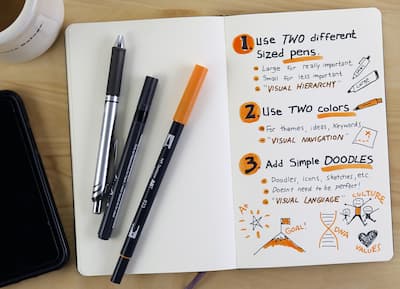 1. Use TWO different
sized pens.
Large for really important
Small for less important
"VISUAL HIERARCHY"
LARGE
small
2. Use TWO colors
For themes, ideas, keywords
"VISUAL NAVIGATION"
3. Add Simple DOODLES
Doodles, icons, sketches, etc
Doesn't need to be perfect!
"VISUAL LANGUAGE"
CULTURE
GOAL!
DNA
VALUES